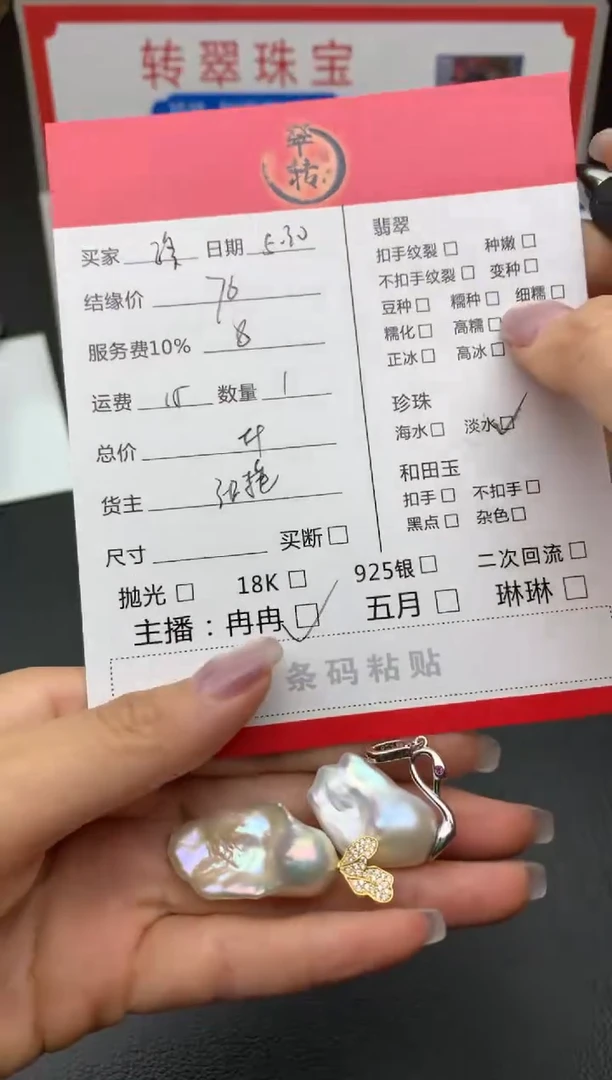 转翠珠宝
翠
转
买家 日期 5.30
结缘价 76
服务费10% 8
运费 15 数量 1
总价
货主
尺寸 买断 □
抛光 □ 18K □ 925银 □ 二次回流 □
主播：冉冉 □ 五月 □ 琳琳 □
条码粘贴
翡翠
扣手纹裂 □ 种嫩 □
不扣手纹裂 □ 变种 □
豆种 □ 糯种 □ 细糯 □
糯化 □ 高糯 □
正冰 □ 高冰 □
珍珠
海水 □ 淡水 □
和田玉
扣手 □ 不扣手 □
黑点 □ 杂色 □